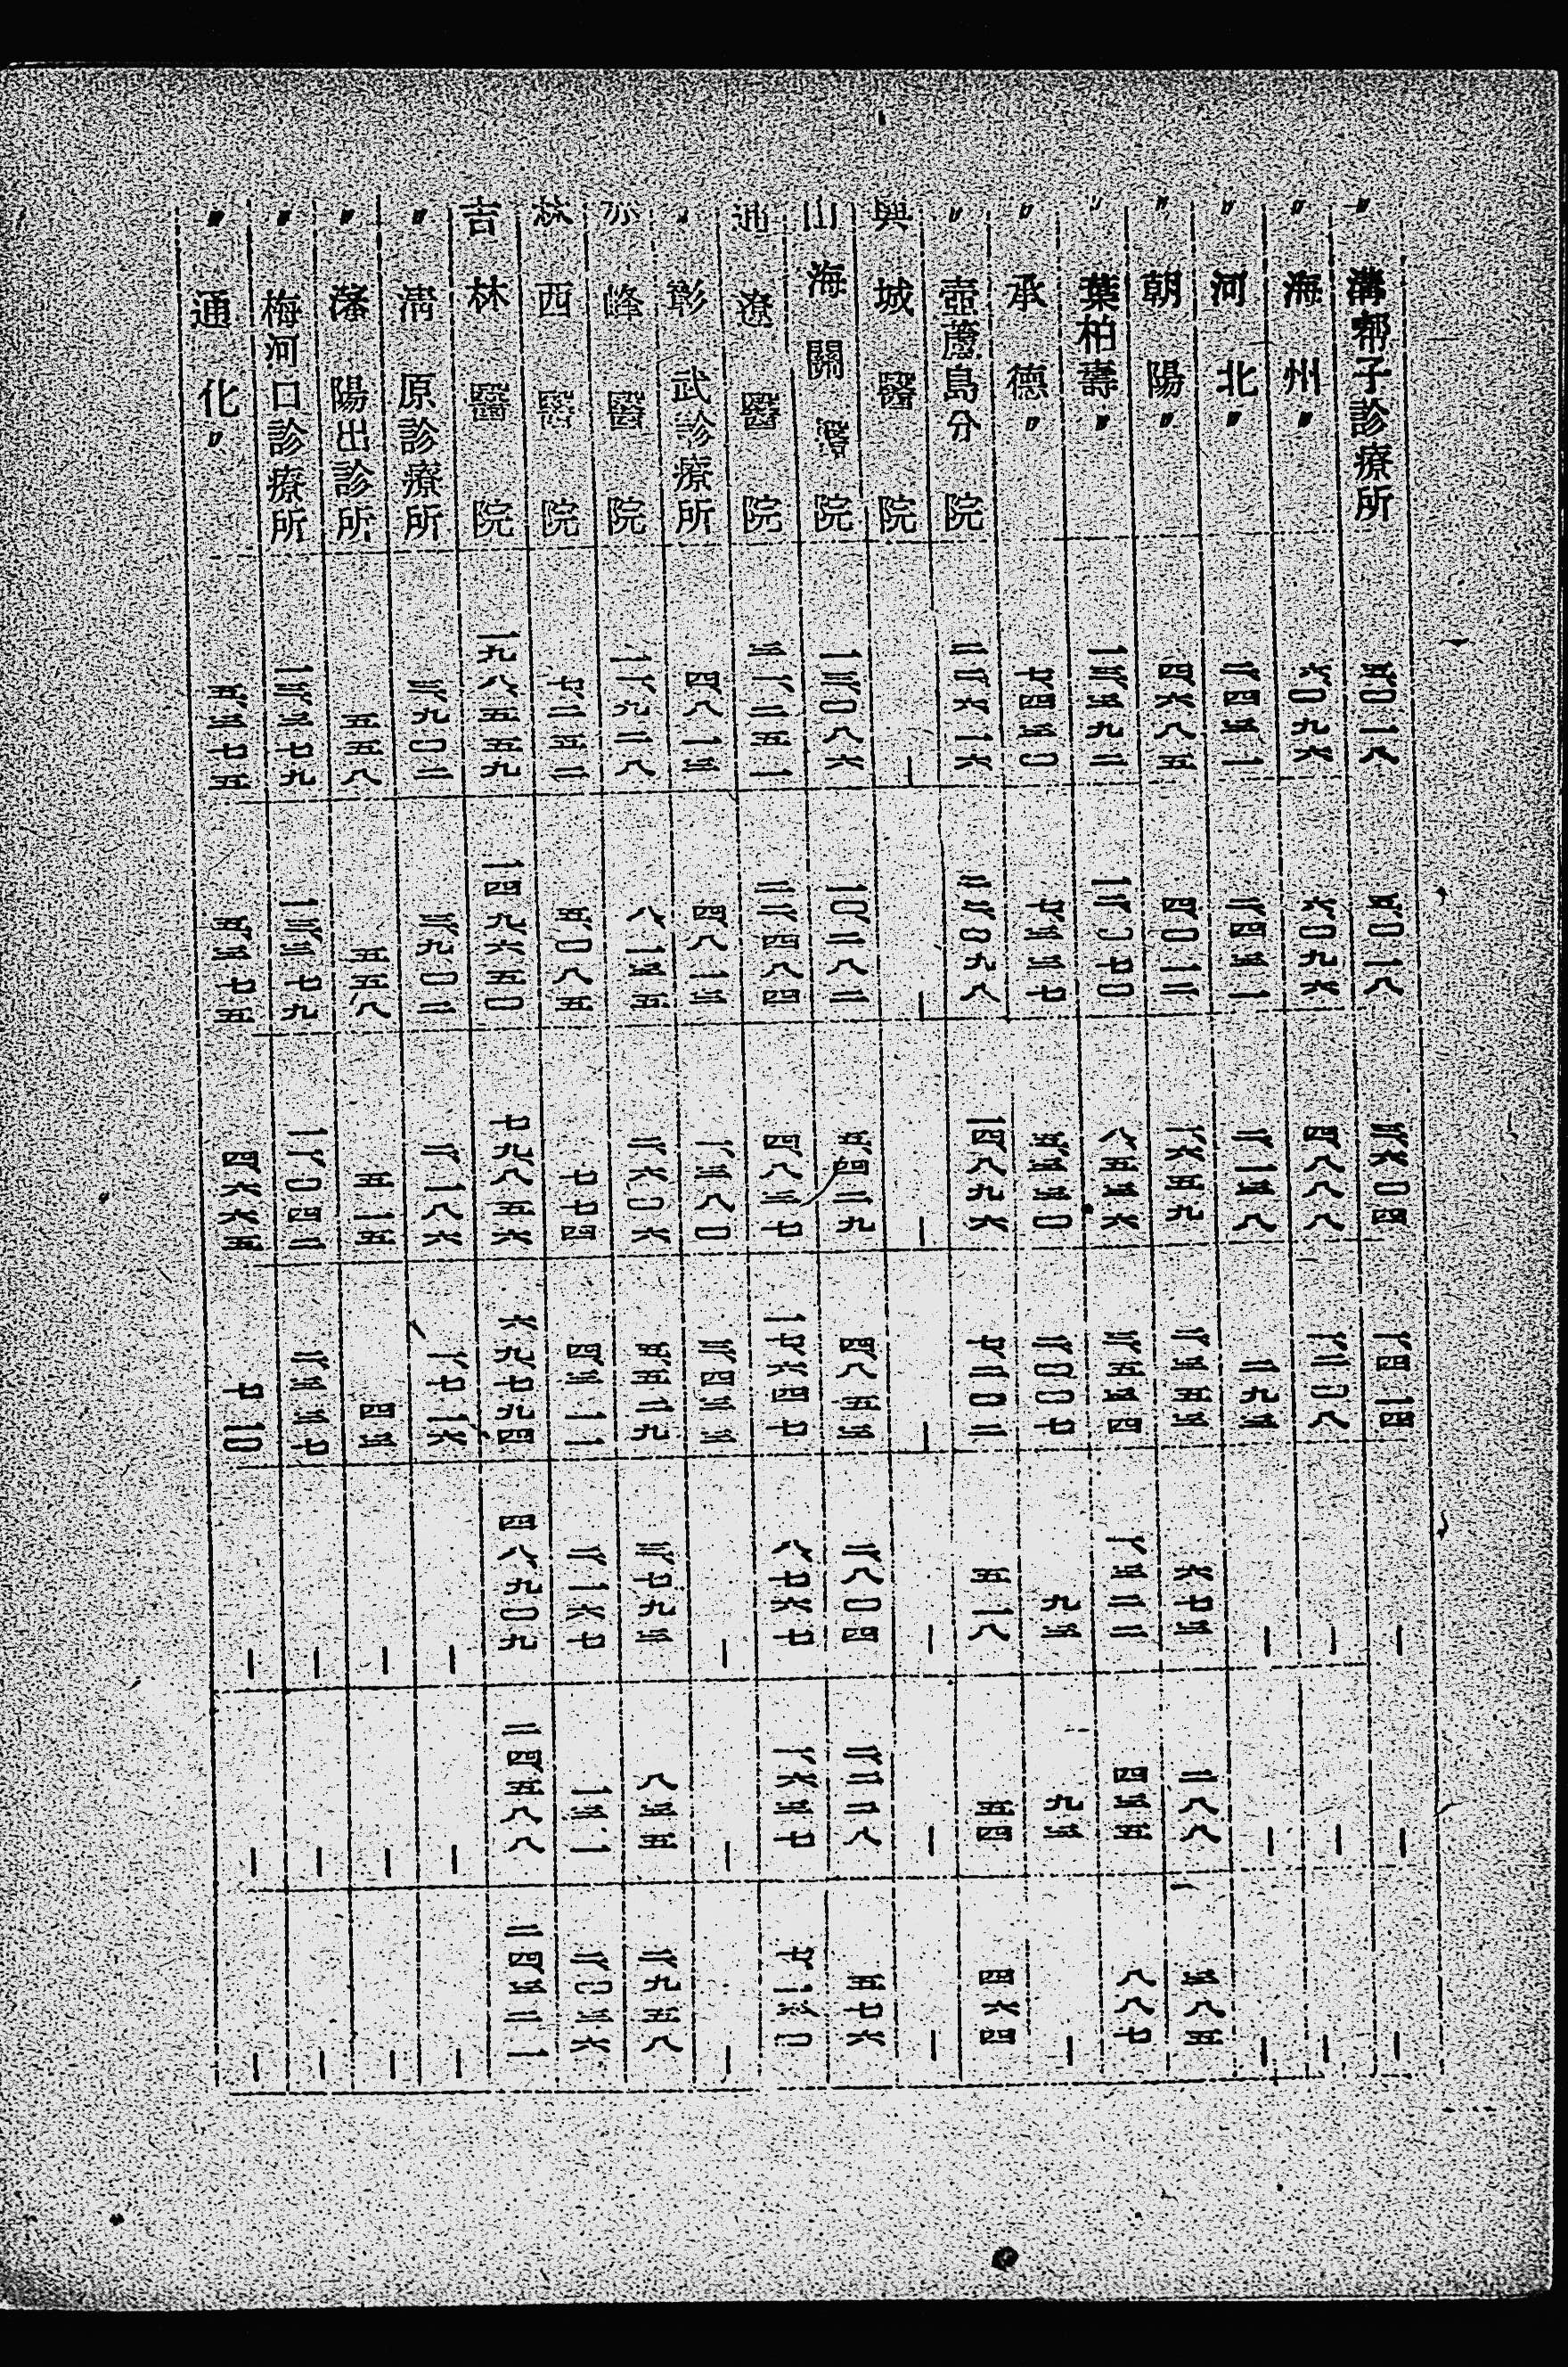 〃溝帮子診療所 五、〇一八 五、〇一八 三、六〇四 一、四一四 — — —
〃海州〃 六、〇九六 六、〇九六 四、八八八 一、二〇八 — — —
〃河北〃 二、四三一 二、四三一 二、一三八 二九三 — — —
〃朝陽〃 四、六八五 四、〇一二 一、六五九 二、三五三 六七三 二八八 三八五
〃葉柏壽〃 一三、三九二 一二、〇七〇 八、五三六 三、五三四 一、三二二 四三五 八八七
〃承德〃 七、四三〇 七、三三七 五、三三〇 二、〇〇七 九三 九三 —
〃壺蘆島分院 二二、六一六 二二、〇九八 一四、八九六 七、二〇二 五一八 五四 四六四
興城醫院 — — — — — — —
山海關醫院 一三、〇八六 一〇、二八二 五、四二九 四、八五三 二、八〇四 二、二二八 五七六
通遼醫院 三一、二五一 二二、四八四 四、八三七 一七、六四七 八、七六七 一、六三七 七、一三〇
〃彰武診療所 四、八一三 四、八一三 一、三八〇 三、四三三 — — —
赤峰醫院 一一、九二八 八、一三五 二、六〇六 五、五二九 三、七九三 八三五 二、九五八
林西醫院 七、二五二 五、〇八五 七七四 四、三一一 二、一六七 一三一 二、〇三六
吉林醫院 一九八、五五九 一四九、六五〇 七九、八五六 六九、七九四 四八、九〇九 二四、五八八 二四、三二一
〃清原診療所 三、九〇二 三、九〇二 二、一八六 一、七一六 — — —
〃瀋陽出診所 五五八 五五八 五一五 四三 — — —
〃梅河口診療所 一三、三七九 一三、三七九 一一、〇四二 二、三三七 — — —
〃通化〃 五、三七五 五、三七五 四、六六五 七一〇 — — —